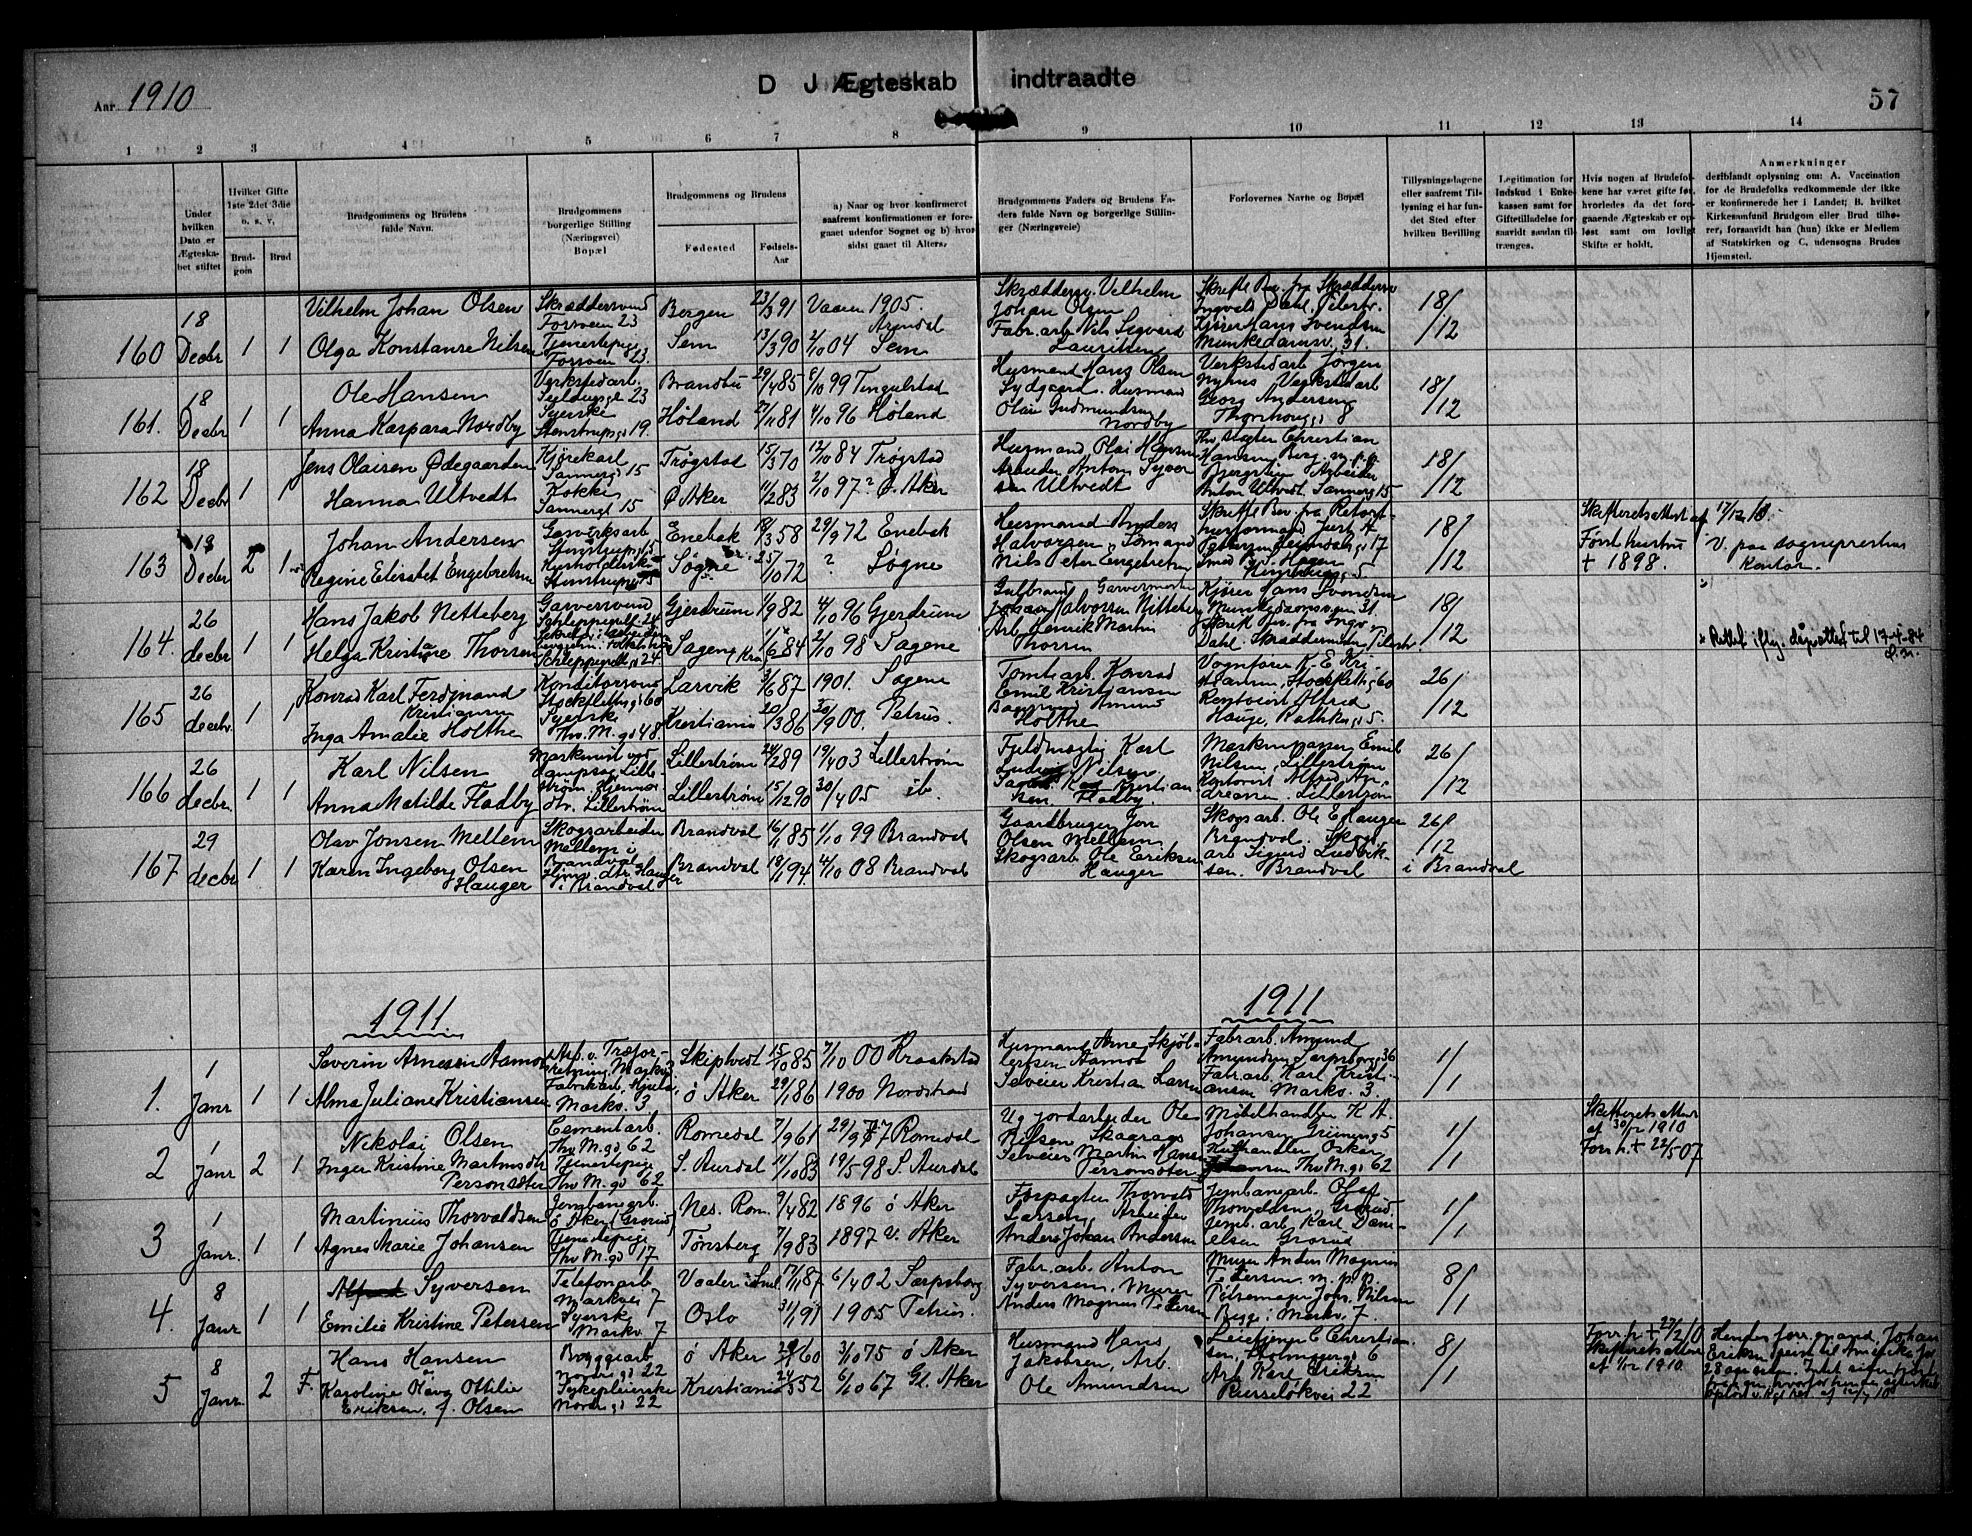 Aar 1910
D J Ægteskab indtraadte
57
1 2 3 4 5 6 7 8 9 10 11 12 13 14
Under hvilken Dato er Ægteskabet stiftet
Hvilket Gifte 1ste 2det 3die o. s. v,
Brudgom
Brud
Brudgommens og Brudens fulde Navn.
Brudgommens borgerlige Stilling (Næringsvei) Bopæl
Brudgommens og Brudens
Fødested
Fødsels-Aar
a) Naar og hvor konfirmeret saafremt konfirmationen er foregaaet udenfor Sognet og b) hvor sidst gaaet til Alters.
Brudgommens Faders og Brudens Faders fulde Navn og borgerlige Stillinger (Næringsveie)
Forlovernes Navne og Bopæl
Tillysningsdagene eller saafremt Tillysning ei har fundet Sted efter hvilken Bevilling
Legitimation for Indskud i Enkekassen samt for Giftetilladelse for saavidt saadan tiltrænges.
Hvis nogen af Brudefolkene har været gifte før, hvorledes da det foregaaende Ægteskab er opløst samt om lovligt Skifte er holdt.
Anmerkninger
deriblandt oplysning om: A. Vaccination for de Brudefolks vedkommende der ikke er konfirmerede her i Landet; B. hvilket Kirkesamfund Brudgom eller Brud tilhører, forsaavidt han (hun) ikke er Medlem af Statskirken og C, udensogns Brudes Hjemsted.
160 18 Decbr 1 1
Vilhelm Johan Olsen Skræddersvend Fossveien 23 Bergen 23/3 91 Vaaren 1905. Arendal
Olga Konstanse Nilsen Tjenestepige Fossveien 23. Sem 13/3 90 2/10 04 Sem
Skrædderm. Vilhelm Johan Olsen
Fabr. arb. Nils Sigvard Lauritsen
Skriftl. Bev. fra Skrædderm Ingvald Dahl, Pilestr.
Kjører Hans Svendsen Munkedamsv. 31.
18/12
161. 18 Decbr 1 1
Ole Hansen Verkstedarb. 23 Brandbu 29/4 85 8/10 99 Tingelstad
Anna Kaspara Nordby Syerske Stenstrupsg. 19. Høland 27/11 81 4/10 96 Høland
Husmand Hans Olsen Lydgaard. Husmand Olaus Gudmundsen Nordby
Verkstedarb Jørgen Nyhus Verkstedarb Georg Andersen Thorshougg. 8
18/12
162 18 Decbr 1 1
Jens Olaisen Ødegaarden Kjørekarl Sannergt 15 Trøgstad 15/3 70 12/10 84 Trøgstad
Hanna Ultvedt Kokke Sannergt 15 Ø Aker 11/2 83 2/10 97? Ø. Aker
Husmand Olai Hansen Arbeider Anton Syversen Ultvedt
Christian Hansen Berg. m. p. p Arbeider Anton Ultvedt. Sannerg 15
18/12
163 18 Decbr 2 1
Johan Andersen Gasverksarb Stenstrupsg 5 Enebak 18/3 58 29/9 72 Enebak
Regine Elisabet Engebretsen Husholderske Stenstrupsg 5 Søgne 25/10 72 ? Søgne
Husmand Anders Halvorsen, Sømand Nils Peter Engebretsen
Skriftl Bev. fra
18/12
Skifteretsattest af 17/12 10. Første hustru + 1898.
V. paa sogneprestens kontor.
164. 26 decbr 1 1
Hans Jakob Netteberg Garversvend Schleppegrellsg 24 Gjerdrum 1/9 82 4/10 96 Gjerdrum
Helga Kristiane Thorsen Schleppegrellsg. 24 Sagene (Kra 11/6 84 2/10 98 Sagene
Gulbrand Garvermester Johan Halvorsen Nitteberg
Arb. Henrik Martin Thorsen
Kjører Hans Svendsen Munkedamsveien 31
Skriftl Bev. fra Ingv. Dahl. Skræddermester Pilestr.
18/12
* Rettet iflg. dåpsattest til 17-4-84
165 26 decbr. 1 1
Konrad Karl Ferdinand Kristiansen Konditorsvend Stockfletsg. 60 Larvik 3/6 87 1901. Sagene
Inga Amalie Holthe Syerske Thv. M. gd 48 Kristiania 20/3 86 30/9 00. Petrus.
Tomtearb. Konrad Emil Kristiansen
Amund Holthe
Vognfører K. E. Kristiansen, Stockfletsg 60
Kontorist Alfred Hauge, Rathkesg. 5.
26/12
166 26 decbr. 1 1
Karl Nilsen Maskinist ved Dampsag Lillestrøm Lillestrøm 24/2 89 19/4 03 Lillestrøm
Anna Matilde Fladby Hjemmedtr. Lillestrøm Lillestrøm 15/12 90 30/4 05 ib.
Karl Ludvig Nilsen
Kristiansen Fladby.
Maskinpasser Emil Nilsen, Lillestrøm
Kontorist Alfred Andreassen, Lillestrøm
26/12
167 29 decbr 1 1
Olav Jonsen Mellem Skogsarbeider Mellem i Brandval Brandval 16/1 85 1/10 99 Brandval
Karen Ingeborg Olsen Hauger Hjem. dtr. Hauger i Brandval Brandval 18/1 94. 4/10 08 Brandval
Gaardbruger Jon Olsen Mellem.
Skogsarb Ole Eriksen Hauger
Skogsarb. Ole E Hauger Brandval. Skogsarb Sigurd Ludviksen. Brandval
26/12 i Brandval
1911
1911
1. 1 Janr 1 1
Severin Arnesen Aamot Arb. v. Træforretning Markv 3 Skiptvedt 15/10 85 7/10 00 Kraakstad
Alma Juliane Kristiansen Fabrikarb. Hjula, Markv. 3 ø Aker 29/1 86 1900 Nordstrand
Husmand Arne Skjølersen Aamot
Selveier Kristian Larsen
Fabr. arb. Amund Amundsen Sarpsborgg. 36
Fabr. arb. Karl Kristiansen Markv. 3.
1/1
2 1 Janr 2 1
Nikolai Olsen Cementarb. Thv M. gd 62 Romedal 7/9 61 29/9 77 Romedal
Inger Kristine Martinsdtr Personsæter Tjenestepige Thv M. gd 62 S. Aurdal 11/10 83 19/5 98 S. Aurdal
Ug. Jordarbeider Ole Nilsen Skaarags
Selveier Martin Hansen Personsæter
Møbelhandler K A. Johansen Grünersg 5
Oskar Johansen Thv M. gd 62
1/1
Skifteretsattest af 30/12 1910
Forr. h. + 22/5 07
3 1 Janr. 1 1
Martinius Thorvaldsen Jernbanearb. ø Aker (Grorud) Nes. Rom. 9/4 82 1896 ø Aker
Agnes Marie Johansen Tjenestepige Thv M. gd 17 Tønsberg 7/9 83 1897 V. Aker
Forpagter Thorvald Larsen, Arbeider Anders Johan Andersen
Jernbanearb. Olaf Thorvaldsen, Grorud
Jernb. arb. Karl Danielsen Grorud
1/1
4. 8 Janr 1 1
Alfred Syversen Telefonarb Markvei 7 Vaaler i Sml. 17/11 87 6/4 02 Sarpsborg
Emilie Kristine Petersen Syersk Markv. 7 Oslo 31/1 91 1905 Petrus.
Fabr. arb. Anton Syversen, Murer Anders Magnus Pedersen
Murer Anders Magnus Pedersen m. p. p.
Pølsemager Johs. Nilsen Bygg i Markv. 7.
8/1
5 8 Janr. 2 F.
Hans Hansen Byggearb Nordregd 22 ø Aker 29/1 60 3/10 75 ø Aker
Karoline Olava Ottilie Eriksen, f. Olsen Sykepleierske Nordregd 22 Kristiania 24/3 52 6/10 67 Gl. Aker
Husmand Hans Jakobsen, Arb. Ole Amundsen
C Christiansen, Holmsgd. 6
Arb Kare Eriksen Russeløkvei 22
8/1
Forr. h + 22/2 10 Skifteretsattest af 1/12 1910.
Hendes forr. mand, Johan Eriksen reiste til Amerika for 28 aar siden. Intet siden hørt fra